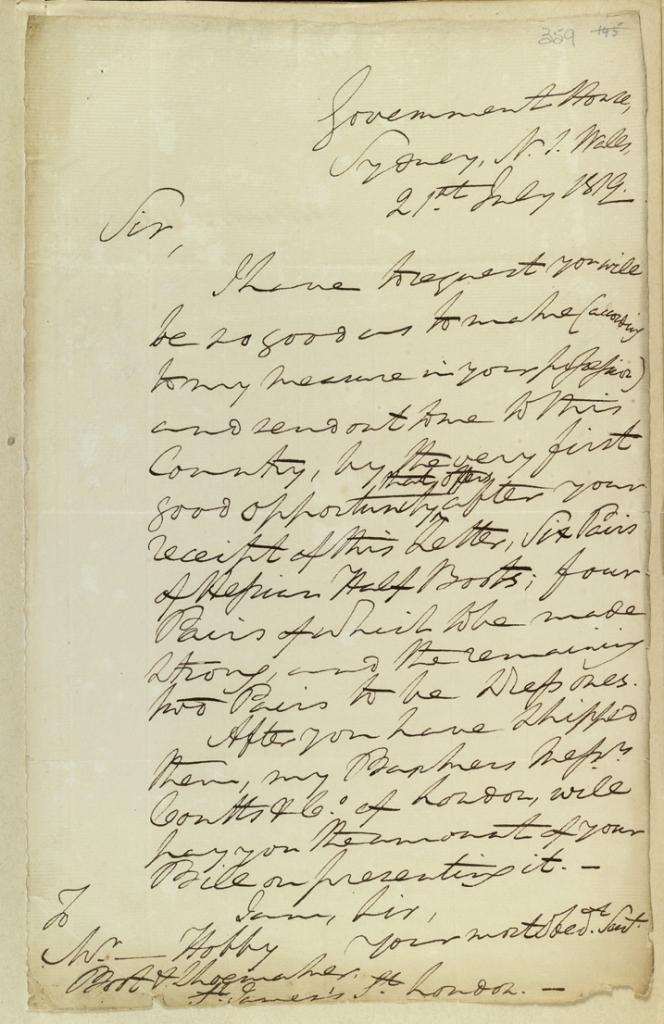 359 195
Government House,
Sydney, N. S. Wales,
21st. July 1819.
Sir,
I have to request you will
be so good as to make (according
to my measure in your possession)
and send out to me to this
Country, by the very first
that offers
good opportunity, after your
receipt of this Letter, Six Pairs
of Hessian Half Boots; four
Pairs of which to be made
strong, and the remaining
two Pairs to be Dress ones.
After you have shipped
them, my Bankers Messrs.
Coutts & Co. of London, will
pay you the amount of your
Bill on presenting it. —
I am, Sir,
your most obedt. Servt.
To
Mr. — Hobby
Boot & Shoemaker.
St. James's St. London. —